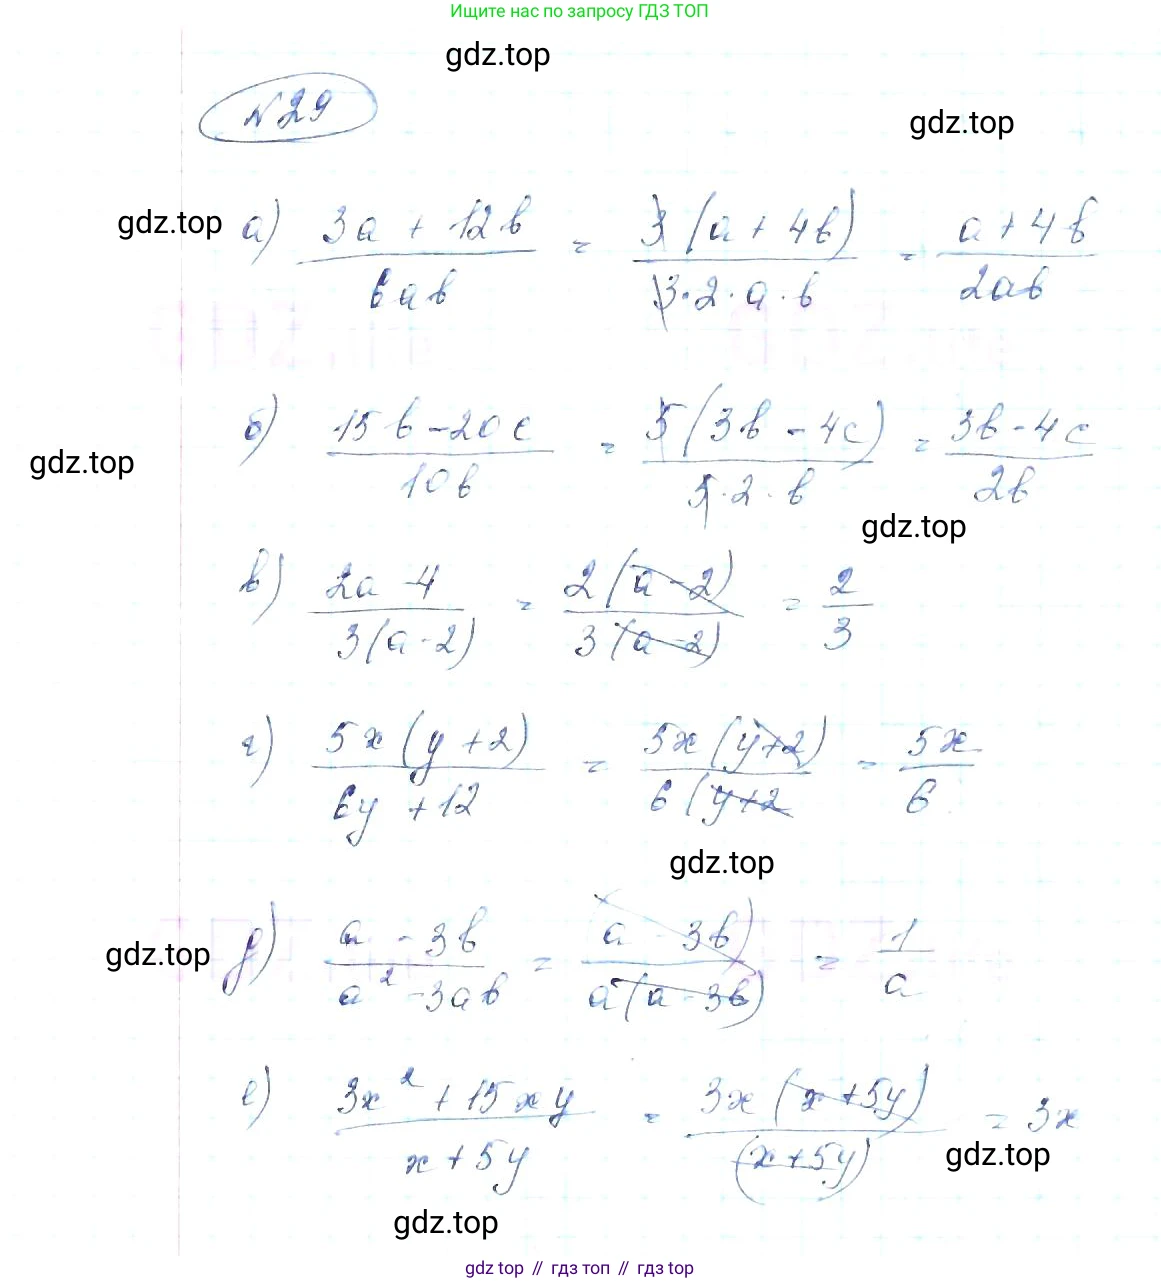 Ищите нас по запросу ГДЗ ТОП
gdz.top
№29
gdz.top
gdz.top
а) (3a + 12b)/(6ab) = (3(a + 4b))/(3·2·a·b) = (a + 4b)/(2ab)
б) (15b - 20c)/(10b) = (5(3b - 4c))/(5·2·b) = (3b - 4c)/(2b)
gdz.top
gdz.top
в) (2a - 4)/(3(a - 2)) = (2(a - 2))/(3(a - 2)) = 2/3
г) (5x(y + 2))/(6y + 12) = (5x(y + 2))/(6(y + 2 = 5x/6
gdz.top
gdz.top
д) (a - 3b)/(a² - 3ab) = (a - 3b)/(a(a - 3b)) = 1/a
е) (3x² + 15xy)/(x + 5y) = (3x(x + 5y))/((x + 5y)) = 3x
gdz.top
gdz.top
gdz top // гдз топ // гдз top